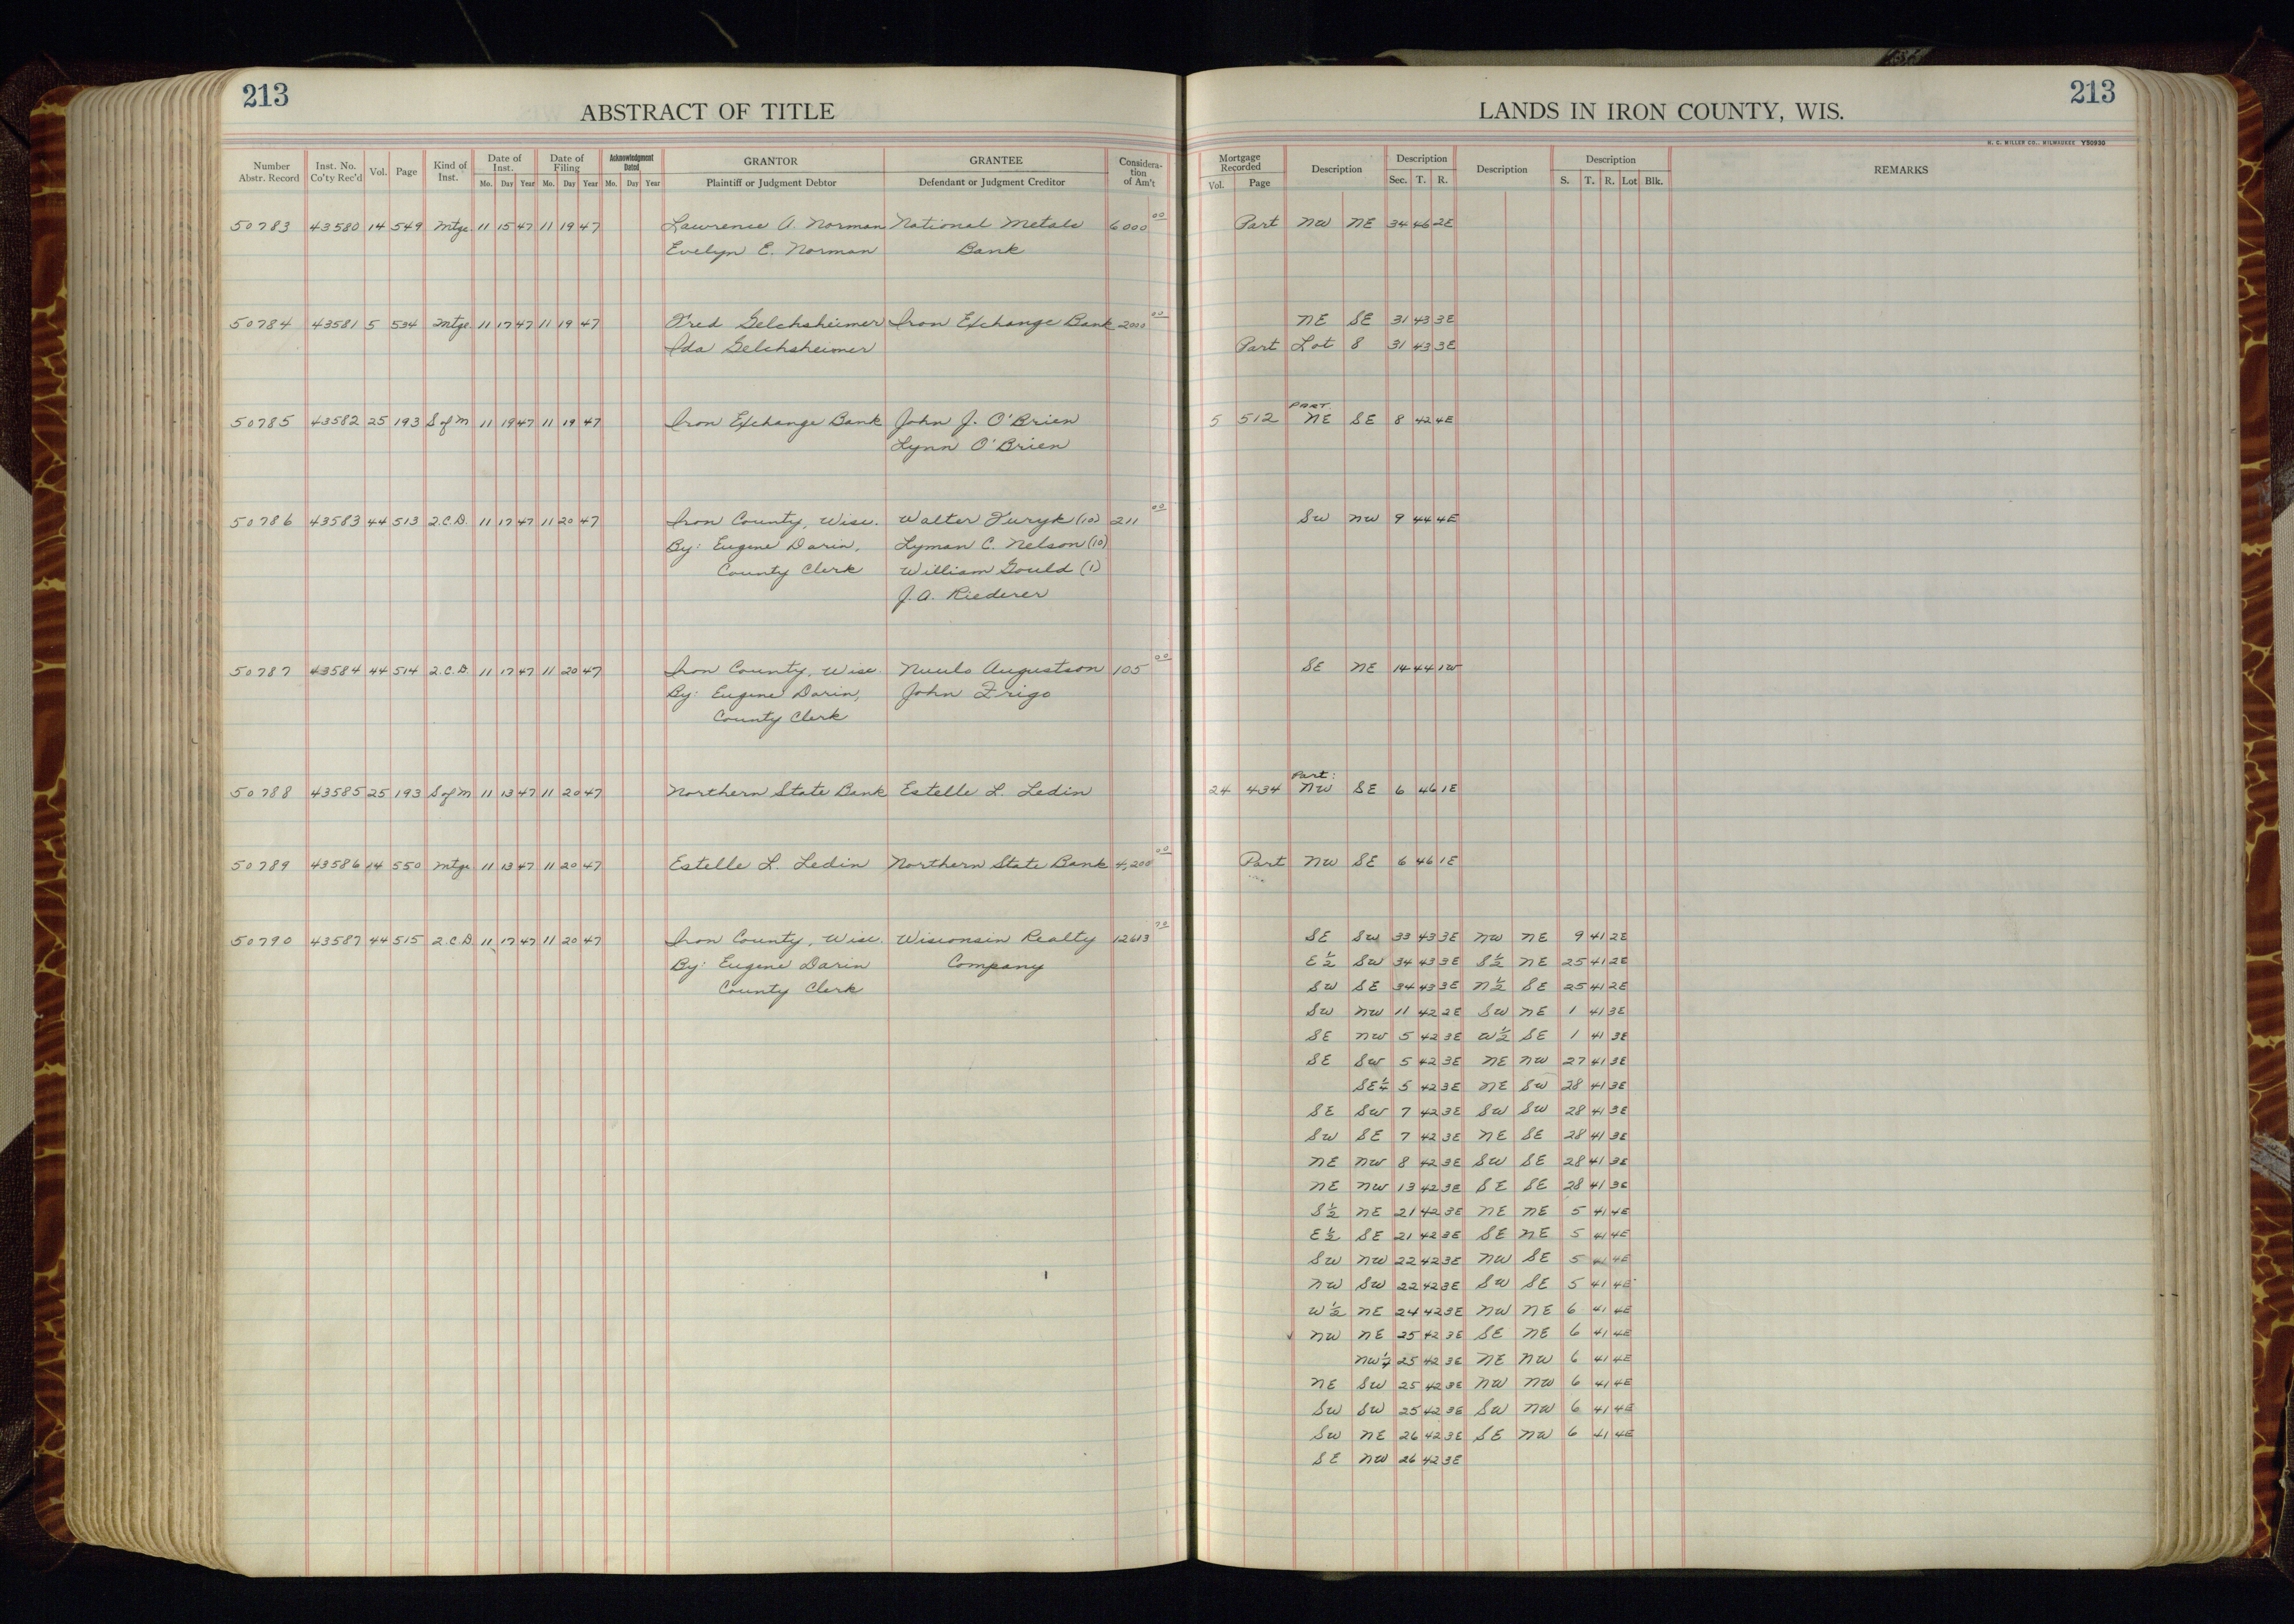 213
ABSTRACT OF TITLE
Number Abstr. Record Inst. No. Co'ty Rec'd Vol. Page Kind of Inst. Date of Inst. Date of Filing Acknowledgment Dated GRANTOR GRANTEE Considera-tion of Am't
Mo. Day Year Mo. Day Year Mo. Day Year Plaintiff or Judgment Debtor Defendant or Judgment Creditor
50783 43580 14 549 Mtge 11 15 47 11 19 47 Lawrence A. Norman National Metals 6000 00
Evelyn E. Norman Bank
50784 43581 5 534 Mtge 11 17 47 11 19 47 Fred Gelchsheimer Iron Exchange Bank 2000 00
Ida Gelchsheimer
50785 43582 25 193 S of M 11 19 47 11 19 47 Iron Exchange Bank John J. O'Brien
Lynn O'Brien
50786 43583 44 513 2.C.D. 11 17 47 11 20 47 Iron County, Wisc. Walter Turyk (10) 211 00
By: Eugene Darin, Lyman C. Nelson (10)
County Clerk William Gould (1)
J.A. Riederer
50787 43584 44 514 2.C.D. 11 17 47 11 20 47 Iron County, Wisc. Augustson 105 00
By: Eugene Darin, John Frigo
County Clerk
50788 43585 25 193 S of M 11 13 47 11 20 47 Northern State Bank Estelle L. Ledin
50789 43586 14 550 Mtge 11 13 47 11 20 47 Estelle L. Ledin Northern State Bank 4,200 00
50790 43587 44 515 2.C.D 11 17 47 11 20 47 Iron County, Wisc. Wisconsin Realty 12613 70
By: Eugene Darin Company
County Clerk
213
LANDS IN IRON COUNTY, WIS.
H. C. MILLER CO., MILWAUKEE Y50930
Mortgage Recorded Description Description Description Description REMARKS
Vol. Page Sec. T. R. S. T. R. Lot Blk.
Part NW NE 34 46 2E
NE SE 31 43 3E
Part Lot 8 31 43 3E
PART.
5 512 NE SE 8 42 4E
SW NW 9 44 4E
SE NE 14 44 1W
Part:
24 434 NW SE 6 46 1E
Part NW SE 6 46 1E
SE SW 33 43 3E NW NE 9 41 2E
E½ SW 34 43 3E S½ NE 25 41 2E
SW SE 34 43 3E N½ SE 25 41 2E
SW NW 11 42 2E SW NE 1 41 3E
SE NW 5 42 3E W½ SE 1 41 3E
SE SW 5 42 3E NE NW 27 41 3E
SE¼ 5 42 3E NE SW 28 41 3E
SE SW 7 42 3E SW SW 28 41 3E
SW SE 7 42 3E NE SE 28 41 3E
NE NW 8 42 3E SW SE 28 41 3E
NE NW 13 42 3E SE SE 28 41 3E
S½ NE 21 42 3E NE NE 5 41 4E
E½ SE 21 42 3E SE NE 5 41 4E
SW NW 22 42 3E NW SE 5 41 4E
NW SW 22 42 3E SW SE 5 41 4E
W½ NE 24 42 3E NW NE 6 41 4E
NW NE 25 42 3E SE NE 6 41 4E
NW¼ 25 42 3E NE NW 6 41 4E
NE SW 25 42 3E NW NW 6 41 4E
SW SW 25 42 3E SW NW 6 41 4E
SW NE 26 42 3E SE NW 6 41 4E
SE NW 26 42 3E